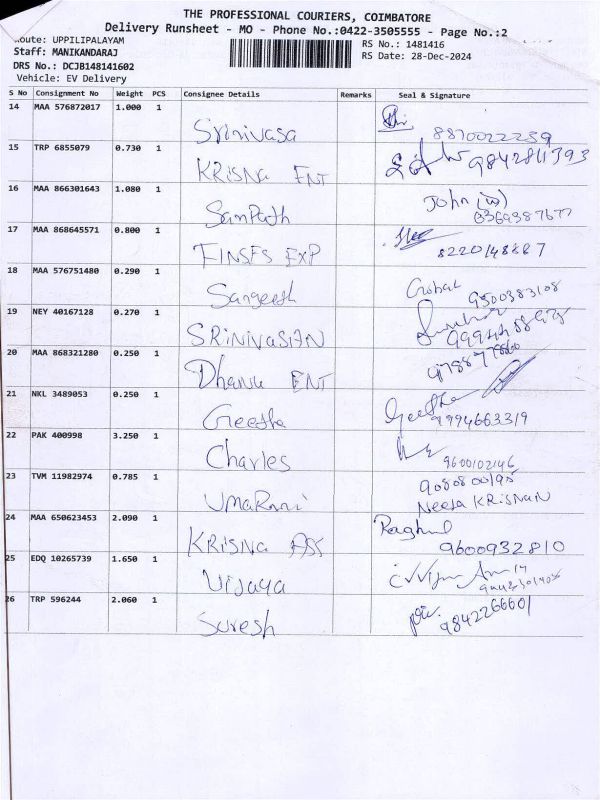 THE PROFESSIONAL COURIERS, COIMBATORE
Delivery Runsheet - MO - Phone No.:0422-3505555 - Page No.:2
Route: UPPILIPALAYAM
Staff: MANIKANDARAJ
DRS No.: DCJB148141602
Vehicle: EV Delivery
RS No.: 1481416
RS Date: 28-Dec-2024
S No Consignment No Weight PCS Consignee Details Remarks Seal & Signature
14 MAA 576872017 1.000 1
Srinivasa 8870022259
15 TRP 6855079 0.730 1
KRISNA ENT
16 MAA 866301643 1.080 1
Sampath John
17 MAA 868645571 0.800 1
FINSES EXP 8220148667
18 MAA 576751480 0.290 1
Sangeeth 9500383108
19 NEY 40167128 0.270 1
SRINIVASAN
20 MAA 868321280 0.250 1
Dhanu ENT
21 NKL 3489053 0.250 1
Geetha Geetha 9994663319
22 PAK 400998 3.250 1
Charles 9600102146
23 TVM 11982974 0.785 1
UMARANI KRISNAN
24 MAA 650623453 2.090 1
KRISNA ASS Raghul 9600932810
25 EDQ 10265739 1.650 1
Vijaya
26 TRP 596244 2.060 1
Suresh 9842266601